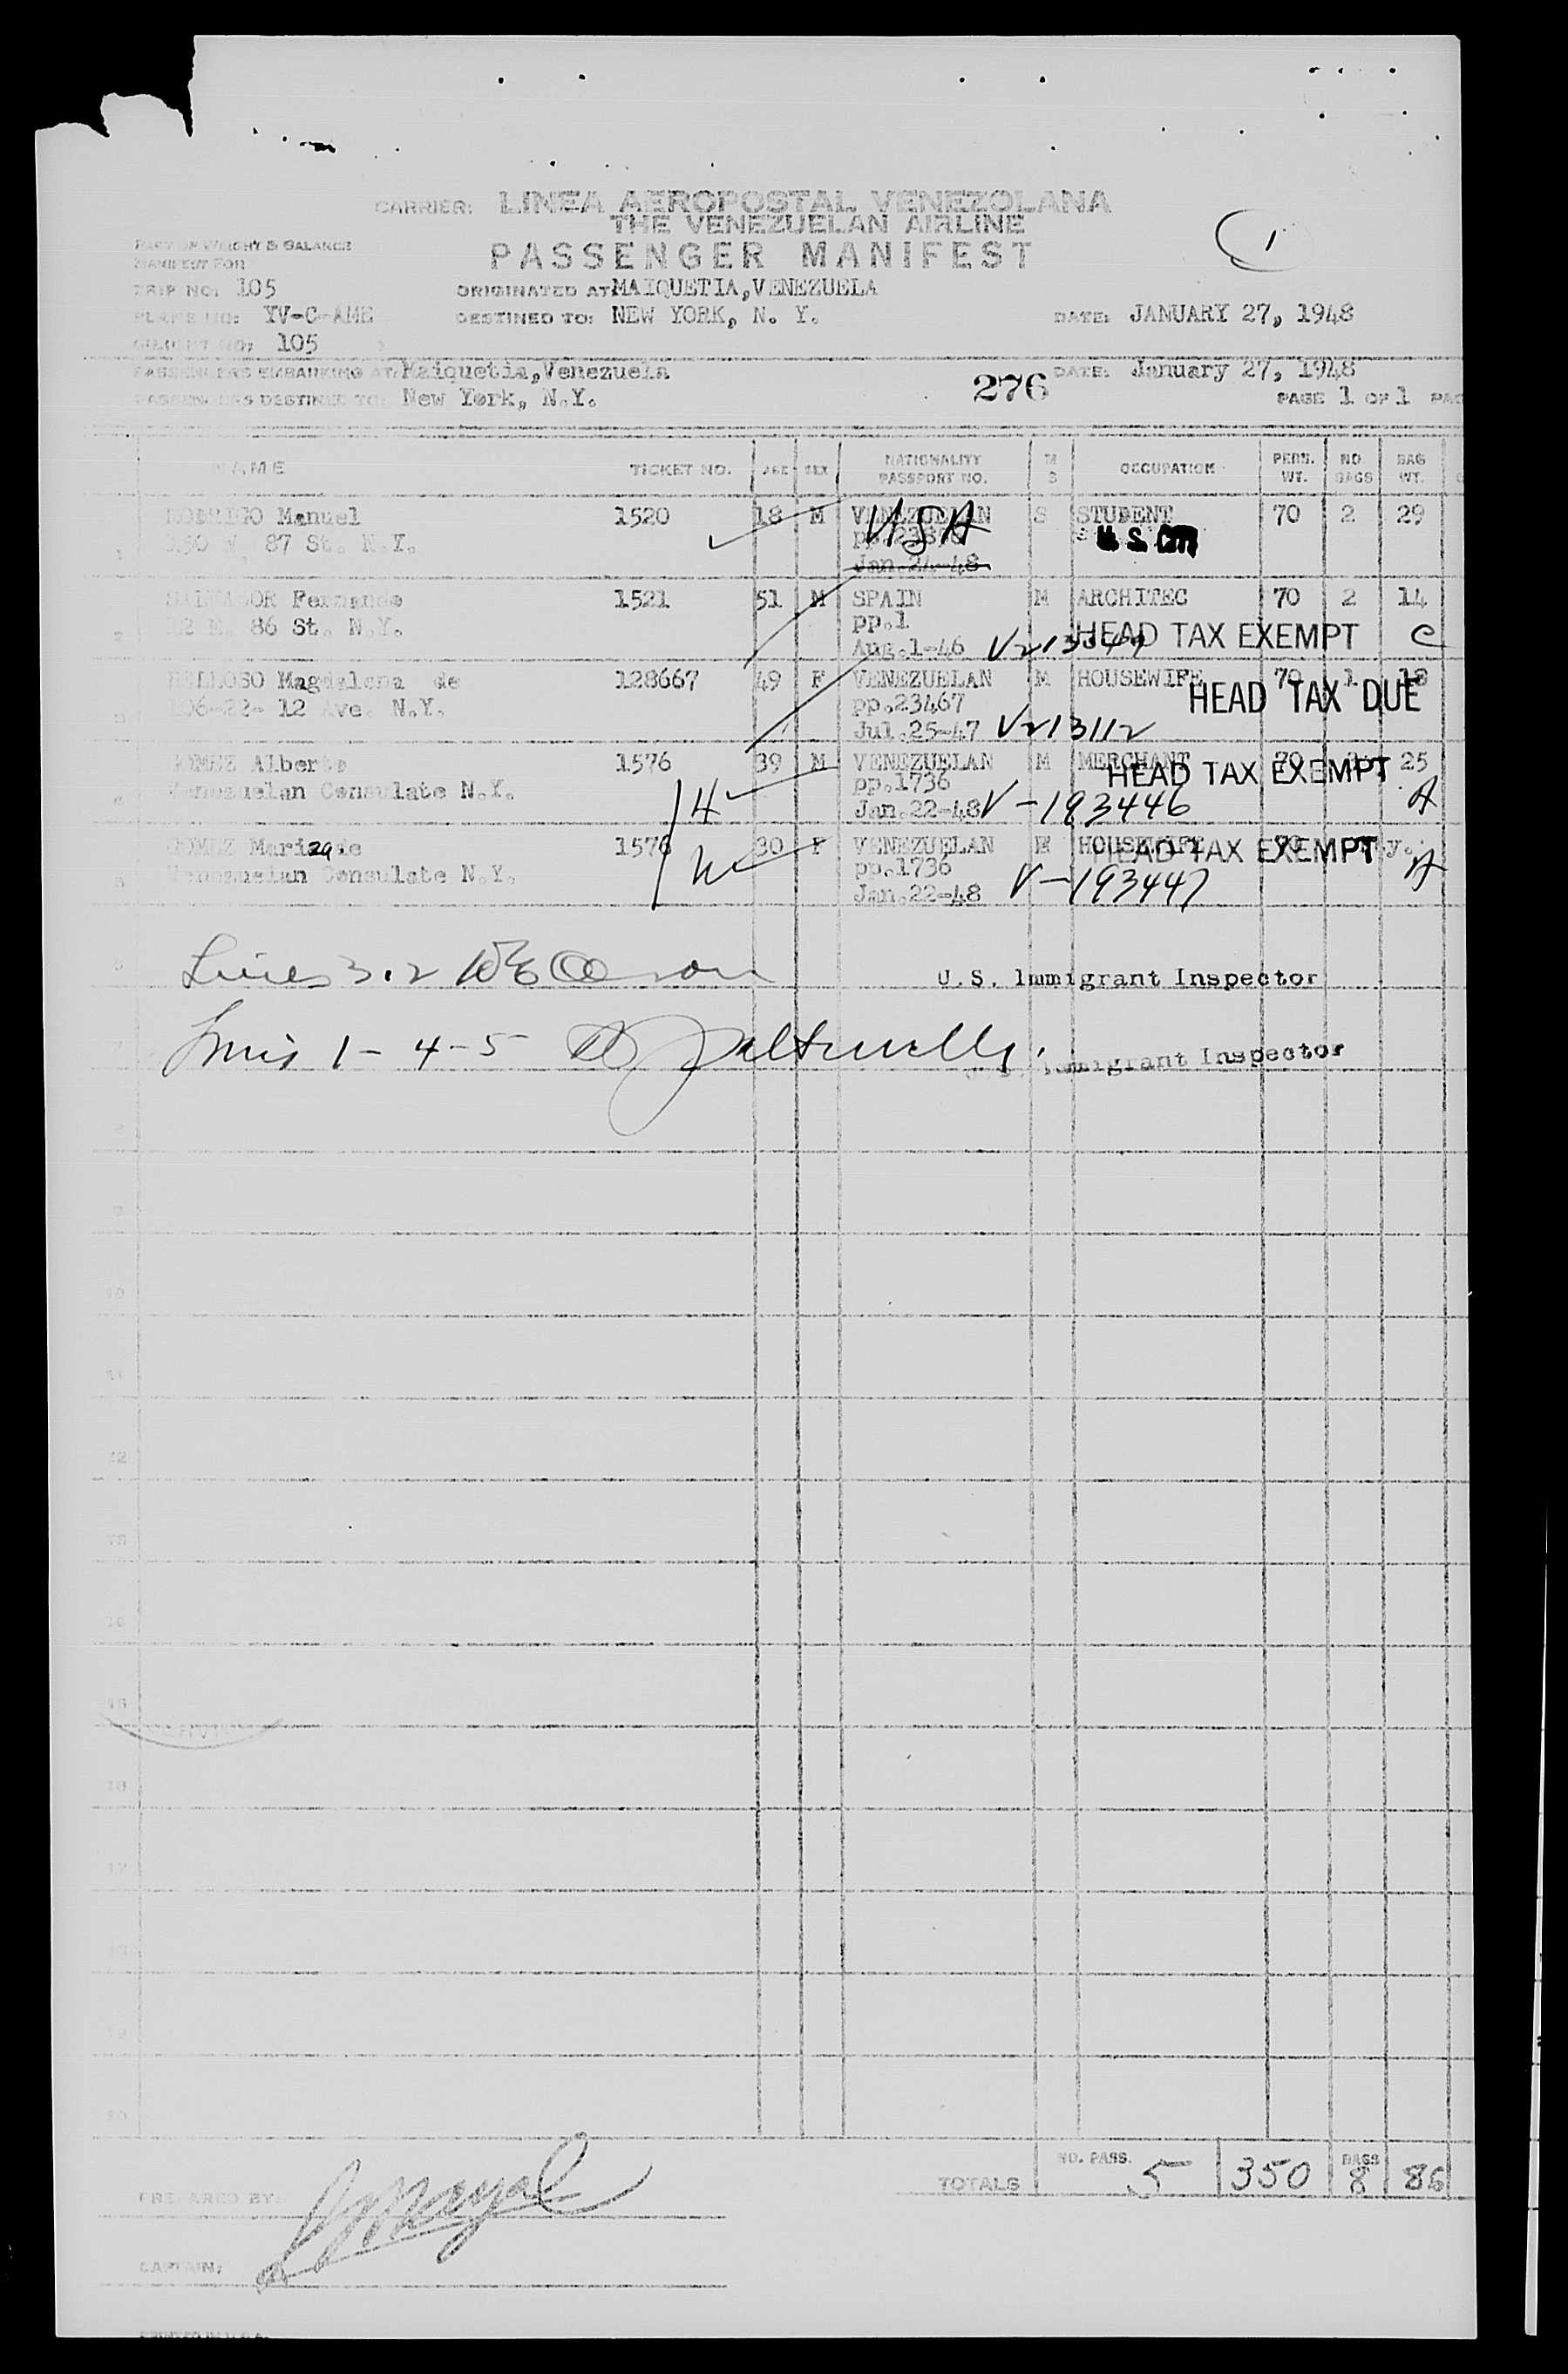 CARRIER: LINEA AEROPOSTAL VENEZOLANA
THE VENEZUELAN AIRLINE
PASSENGER MANIFEST
1
PART OF WEIGHT & BALANCE
MANIFEST FOR
TRIP NO: 105 ORIGINATED AT: MAIQUETIA, VENEZUELA
PLANE NO: YV-C-AME DESTINED TO: NEW YORK, N. Y. DATE: JANUARY 27, 1948
105
PASSENGERS EMBARKING AT: Maiquetia, Venezuela DATE: January 27, 1948
PASSENGERS DESTINED TO: New York, N.Y. 276 PAGE 1 OF 1 PAG
NAME TICKET NO. AGE SEX NATIONALITY PASSPORT NO. M S OCCUPATION PERS. WT. NO. BAGS BAG WT.
1 RODRIGO Manuel 1520 18 M VENEZUELAN S STUDENT 70 2 29
87 St. N.Y. USA U.S. CIT
Jan.24-48
2 SALVADOR Fernando 1521 51 M SPAIN M ARCHITEC 70 2 14
86 St. N.Y. pp.1 HEAD TAX EXEMPT C
Aug.1-46
3 BELLOSO Magdalena de 128667 49 F VENEZUELAN M HOUSEWIFE 70 1 18
12 Ave. N.Y. pp.23467 HEAD TAX DUE
Jul.25-47 V213112
4 GOMEZ Alberto 1576 39 M VENEZUELAN M MERCHANT 70 25
Venezuelan Consulate N.Y. pp.1736 HEAD TAX EXEMPT A
H Jan.22-48 V-193446
5 GOMEZ Maria de 1576 30 F VENEZUELAN M HOUSEWIFE 70
Venezuelan Consulate N.Y. pp.1736 HEAD TAX EXEMPT A
W Jan.22-48 V-193447
Lines 3.2 U.S. Immigrant Inspector
Lines 1-4-5 U.S. Immigrant Inspector
TOTALS NO. PASS. 5 350 BAGS 8 86
PREPARED BY:
CAPTAIN:
PRINTED IN U.S.A.